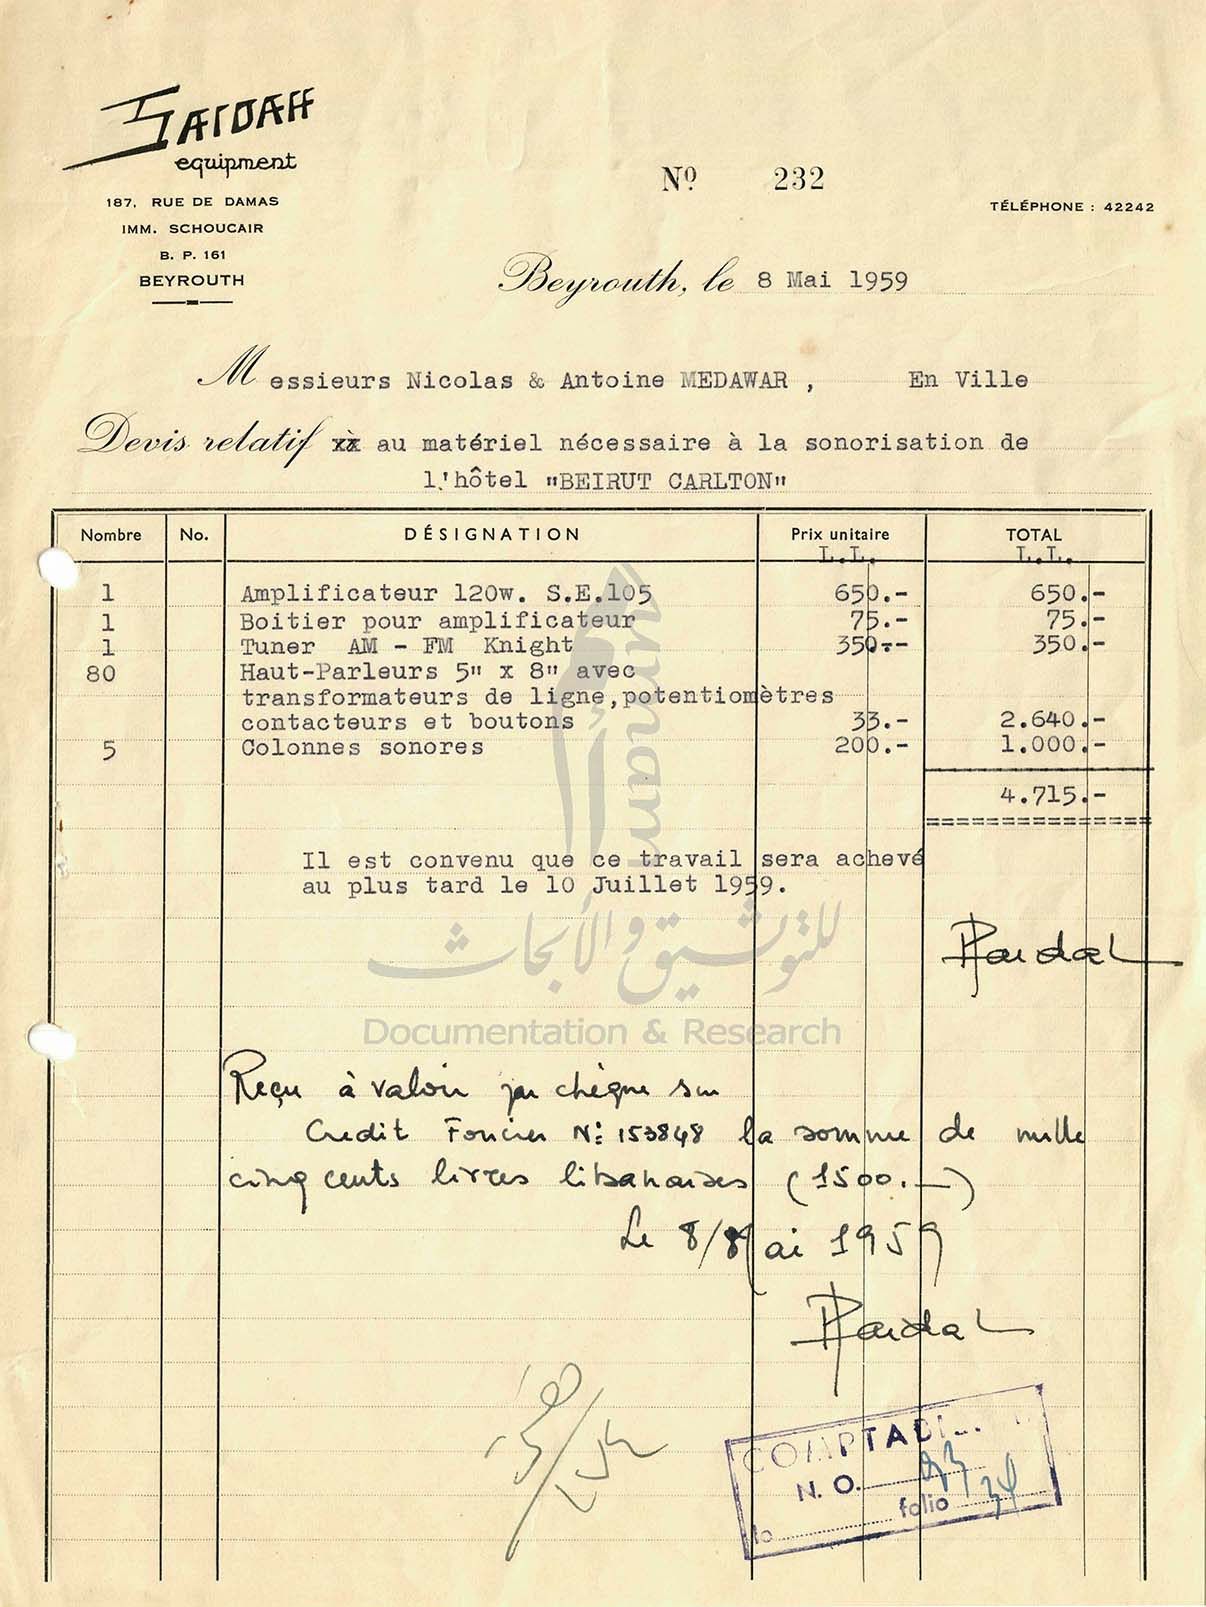 SAIDAH
equipment
187, RUE DE DAMAS
IMM. SCHOUCAIR
B. P. 161
BEYROUTH
Nº 232
TÉLÉPHONE : 42242
Beyrouth, le 8 Mai 1959
Messieurs Nicolas & Antoine MEDAWAR , En Ville
Devis relatif xx au matériel nécessaire à la sonorisation de
l'hôtel "BEIRUT CARLTON"
Nombre No. DÉSIGNATION Prix unitaire TOTAL
L.L. L.L.
1 Amplificateur 120w. S.E.105 650.- 650.-
1 Boitier pour amplificateur 75.- 75.-
1 Tuner AM - FM Knight 350.- 350.-
80 Haut-Parleurs 5" x 8" avec
transformateurs de ligne,potentiomètres
contacteurs et boutons 33.- 2.640.-
5 Colonnes sonores 200.- 1.000.-
4.715.-
Il est convenu que ce travail sera achevé
au plus tard le 10 Juillet 1959.
umam
للتوثيق والأبحاث
Documentation & Research
Reçu à valoir par chèque sur
Credit Foncier Nº: 153848 la somme de mille
cinq cents livres libanaises (1500.-)
Le 8/Mai 1959
COMPTABI
N. O.
folio